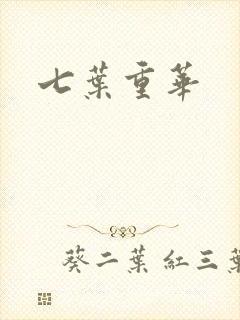 七葉重華
葵二葉紅三葉